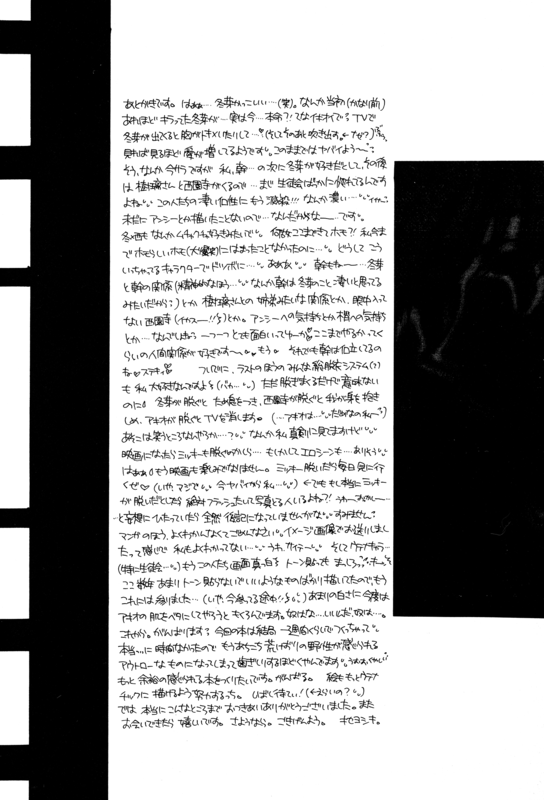 あとがきです。はぁぁ…冬芽かっこいい…(笑)。なんか当初(かなり前)
あれほどキラってた冬芽が…実は今…本命?!てなイキオイで? TVで
冬芽が出てくると胸がトキメいたりして…(そしてそのあと吹き出す。←なぜ?)
見れば見るほど愛が増してるようです。このままではヤバイよう〜
そう、なんか今サラですが 私、幹…の次に冬芽が好きだとして、その後
は 樹璃さんと西園寺がくるので…まじ 生徒会ばっかに惚れてるんです
よね この人たちの凄い個性に もう激殺!!! なんか濃い…
未だに アンシーとか描いたことないので…なんだかなー…です。
冬西も なんかムチャクチャ好きみたいで 何故ここまできてホモ?! 私今ま
で ホモらしいホモ(大爆笑)にはまったことなかったのに… どうして こう
いっちゃってるキャラクターでドツボに… ああああ 幹もねー…冬芽
と幹の関係(精神的なほう…なんか幹は冬芽のこと凄いと思ってる
みたいだから?)とか 樹璃さんとの 姉弟みたいな関係とか、眼中入って
ない西園寺(イカスー!!)とか。アンシーへの気持ちとか梢への気持ち
とか…なんでしょうっ 一つ一つ とても面白いってゆーか ここまでやるかってく
らいの人間関係が好きです〜 もう それでも幹は自立してるの
ね ステキ ついでに、ラストのほうの みんな総脱衣システム(?)
も 私 大好きなんですよ(バカ…) ただ脱ぎまくるだけで意味ない
のに 冬芽が脱ぐと ため息をつき、西園寺が脱ぐと 手が声を抱き
しめ、アキオが脱ぐと TVを消します。(…アキオは…だめなの私〜)
あそこは笑うところなんだろうか…? なんか私 真剣に見てますけど
映画になったら ミッキーも脱ぐのかしら… もしかしてエロシーンも…ありそう
はぁぁ もう映画も楽しみでなりません。ミッキー脱いだら毎日見に行
くぜ(いや、マジで 今ヤバイから私…) ←でも もし本当にミッキー
が脱いだとしたら 絶対フラッシュたいて写真とる人いるよね?!
と妄想にひたっていたら 全然後記になっていませんがな すみません
マンガのほう、よみかたなくてごめんなさい。イメージ画像でお送りしまし
たって感じで 私もよくわかってない… うわ、サイテー そして ウテナキャラ…
(特に生徒会…) もう このんたち画面真っ白 トーン貼っても まっしろ
ここ数年 あまり トーン貼らないでいいようなものばっかり描いてたので もう
これには参りました…(いや、今参ってる途中) あまりの白さに 今度は
アキオの肌をベタにしてやろうと もくろんでます。奴はな…いいんだ、奴は…。
これから。がんばります? 今回の本は結局 一週間くらいでつくっちゃって
本当…に 時間なかったので もうあちこち 荒けずりの野性が感じられる
アウトローな ものになってしまって 歯ぎしりするほどくやんでます
もっと 余裕の感じられる 本をつくりたいです。がんばる。 絵も もっとウテナ
チックに 描けるよう 努力するっち。 しばし待てい!(←えらいの?)
では 本当に こんなところまで おつきあいありがとうございました。また
お会いできたら 嬉しいです。さようなら。ごきげんよう。 チセヨシキ。